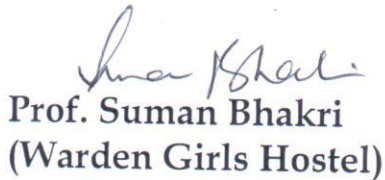 Suman Bhakri
Prof. Suman Bhakri
(Warden Girls Hostel)